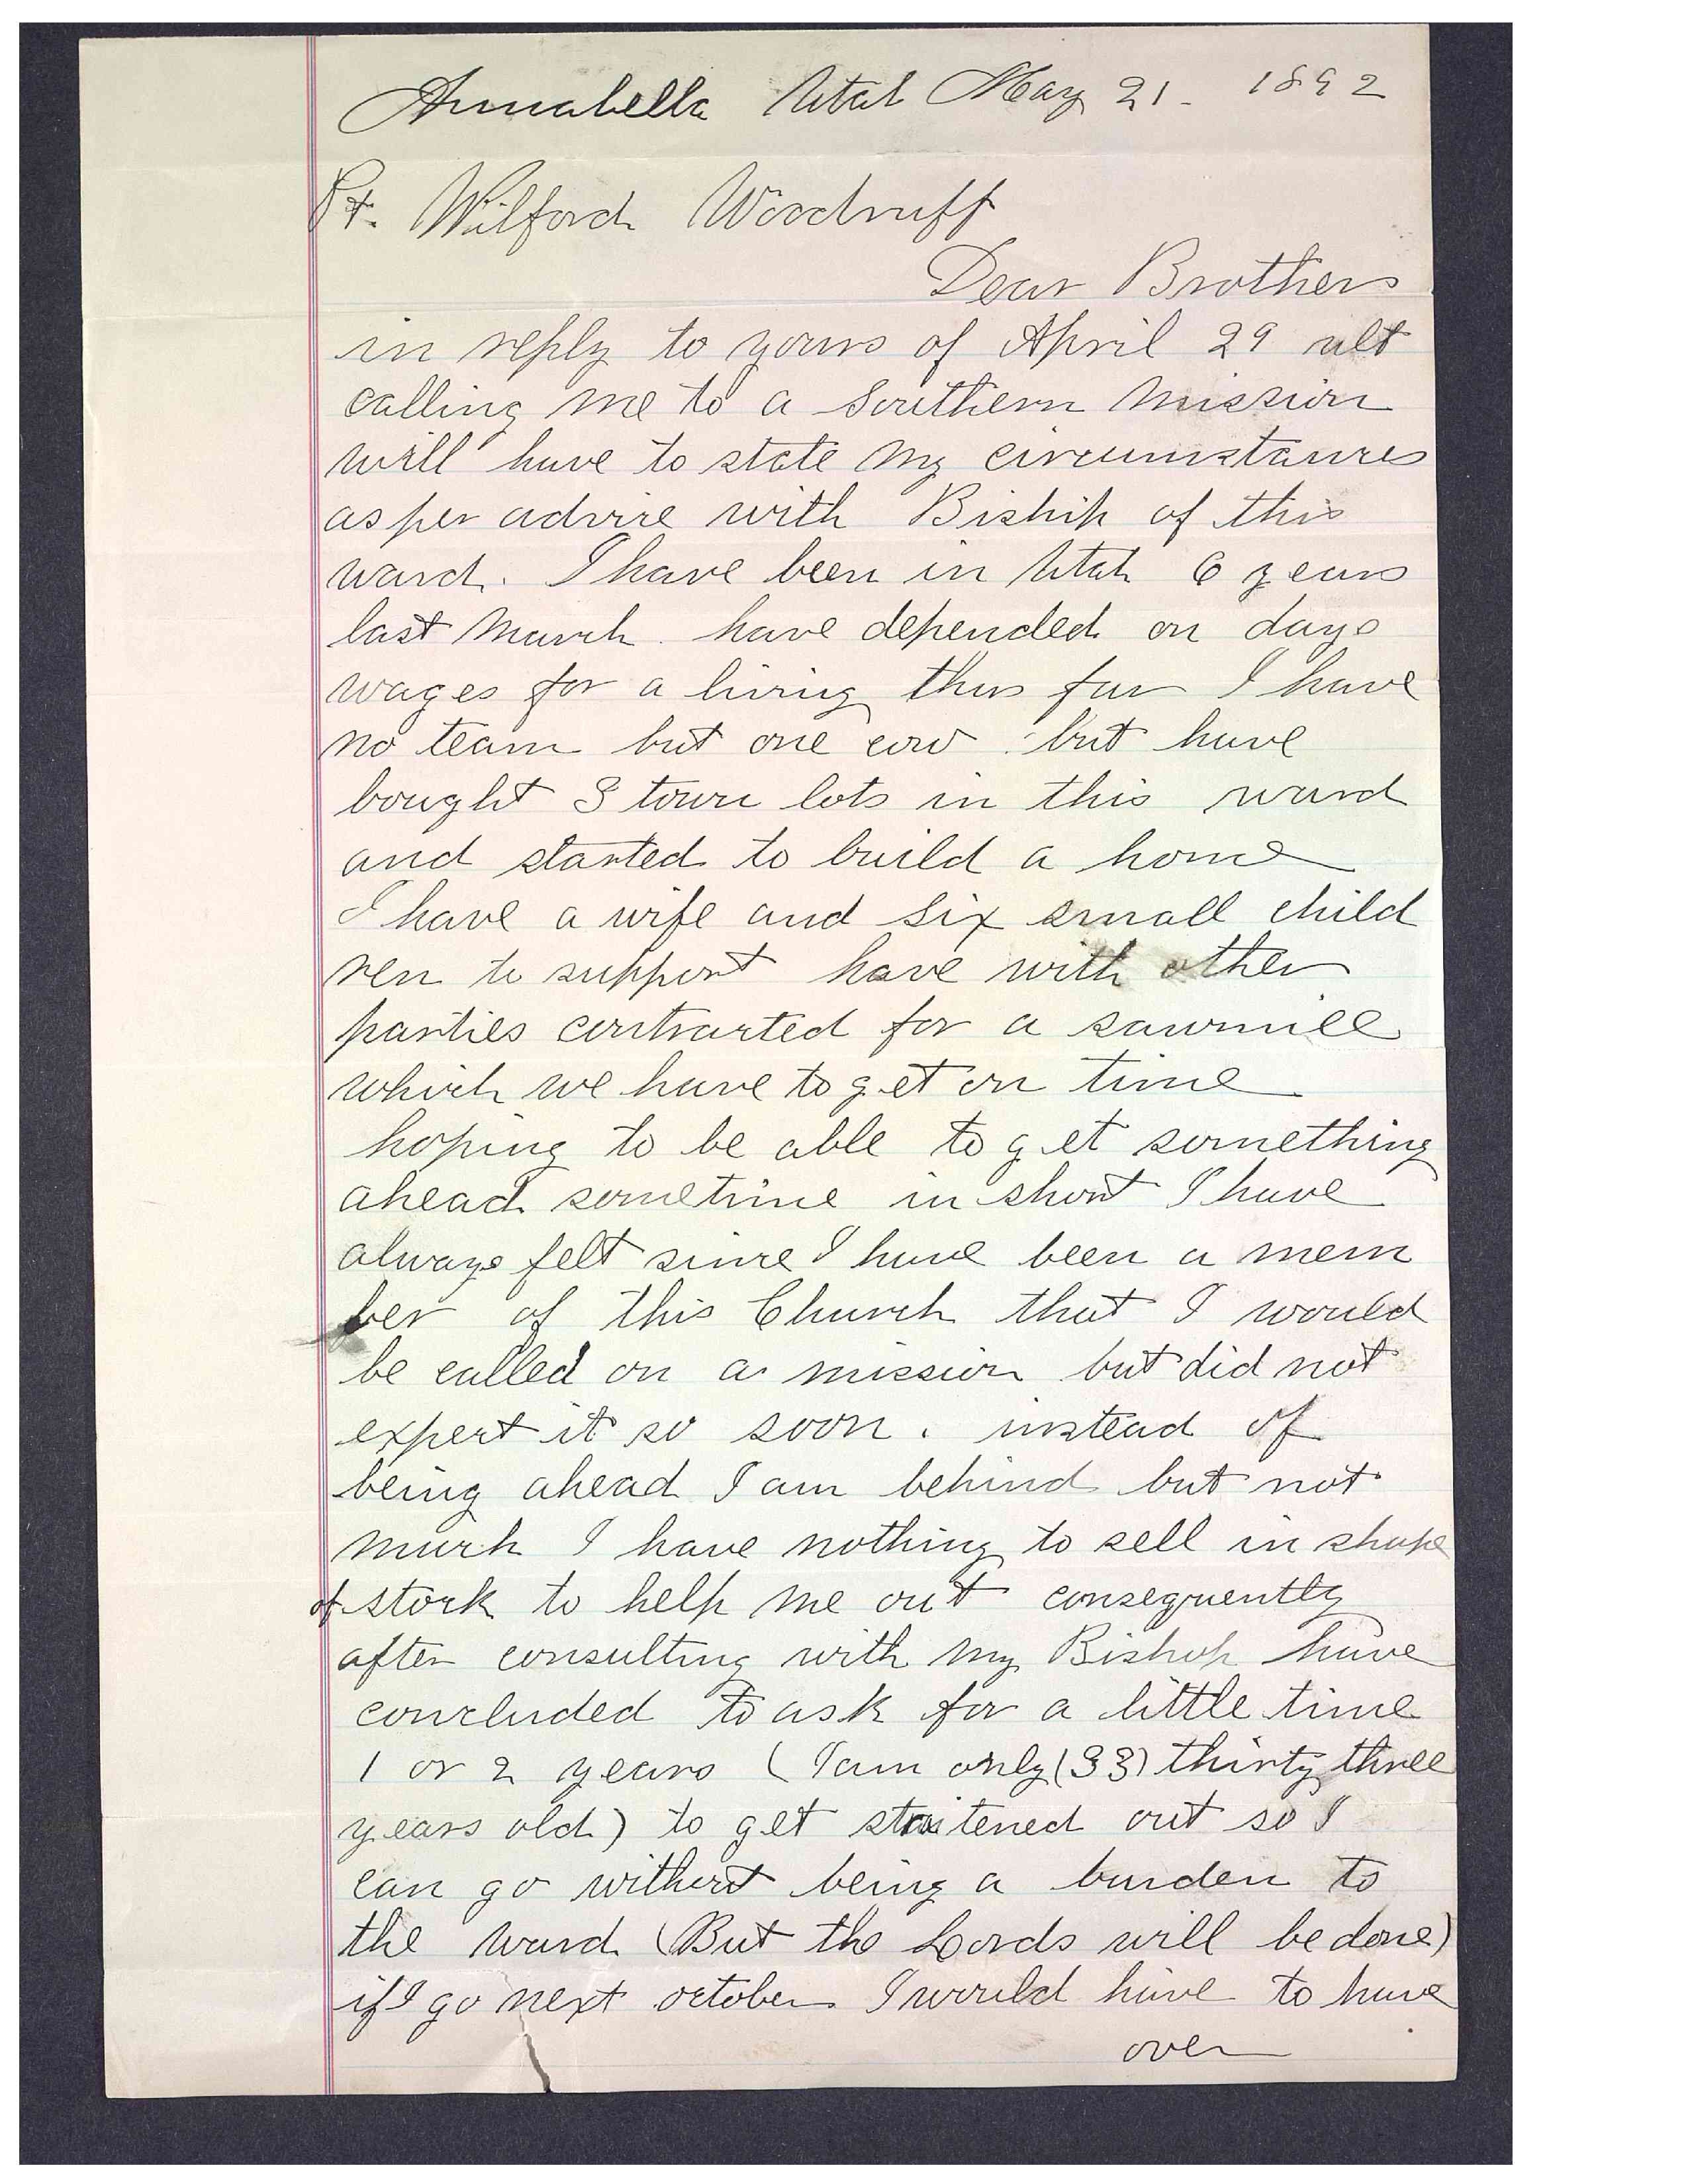 Annabella Utah May 21 - 1892
Pt. Wilford Woodruff
Dear Brothers
in reply to yours of April 29 ult
calling me to a Southern Mission
will have to state my circumstances
as per advice with Biship of this
ward. I have been in Utah 6 years
last March. have depended on days
wages for a living thus far I have
no team but one cow. but have
bought 3 town lots in this ward
and started to build a home
I have a wife and six small child
ren to support have with other
parties contracted for a sawmill
which we have to get on time
hoping to be able to get something
ahead sometime in short I have
always felt since I have been a mem
ber of this Church that I would
be called on a mission but did not
expect it so soon. instead of
being ahead I am behind but not
much I have nothing to sell in shape
of stock to help me out consequently
after consulting with my Bishop have
concluded to ask for a little time
1 or 2 years (I am only (33) thirty three
years old) to get staitened out so I
can go without being a burden to
the ward (But the Lords will be done)
if I go next october I would have to have
over